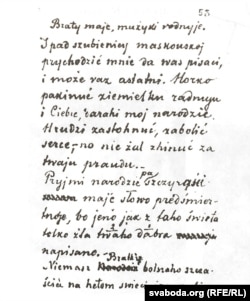 53.
Braty maje, mużyki rodnyje.
I pad szubienicy maskouskoj
prychodzić mnie da was pisaci,
i może raz astatni. Horko
pakinuć ziemielku rodnuju
i Ciebie, darahi moj narodzie.
Hrudzi zastohnuć, zabolić
serce, – no nie żal zhinuć za
twaju praudu. –
Pryjmi narodzie pa szczyrości
maje słowo predśmior-
tnoje, bo jeno jak z taho świeta
tolko dla twaho dabra
napisano.
Bratiá
Niemasz bolszaho szcza-
ścia na hetom
svaboda.org (RFE/RL)